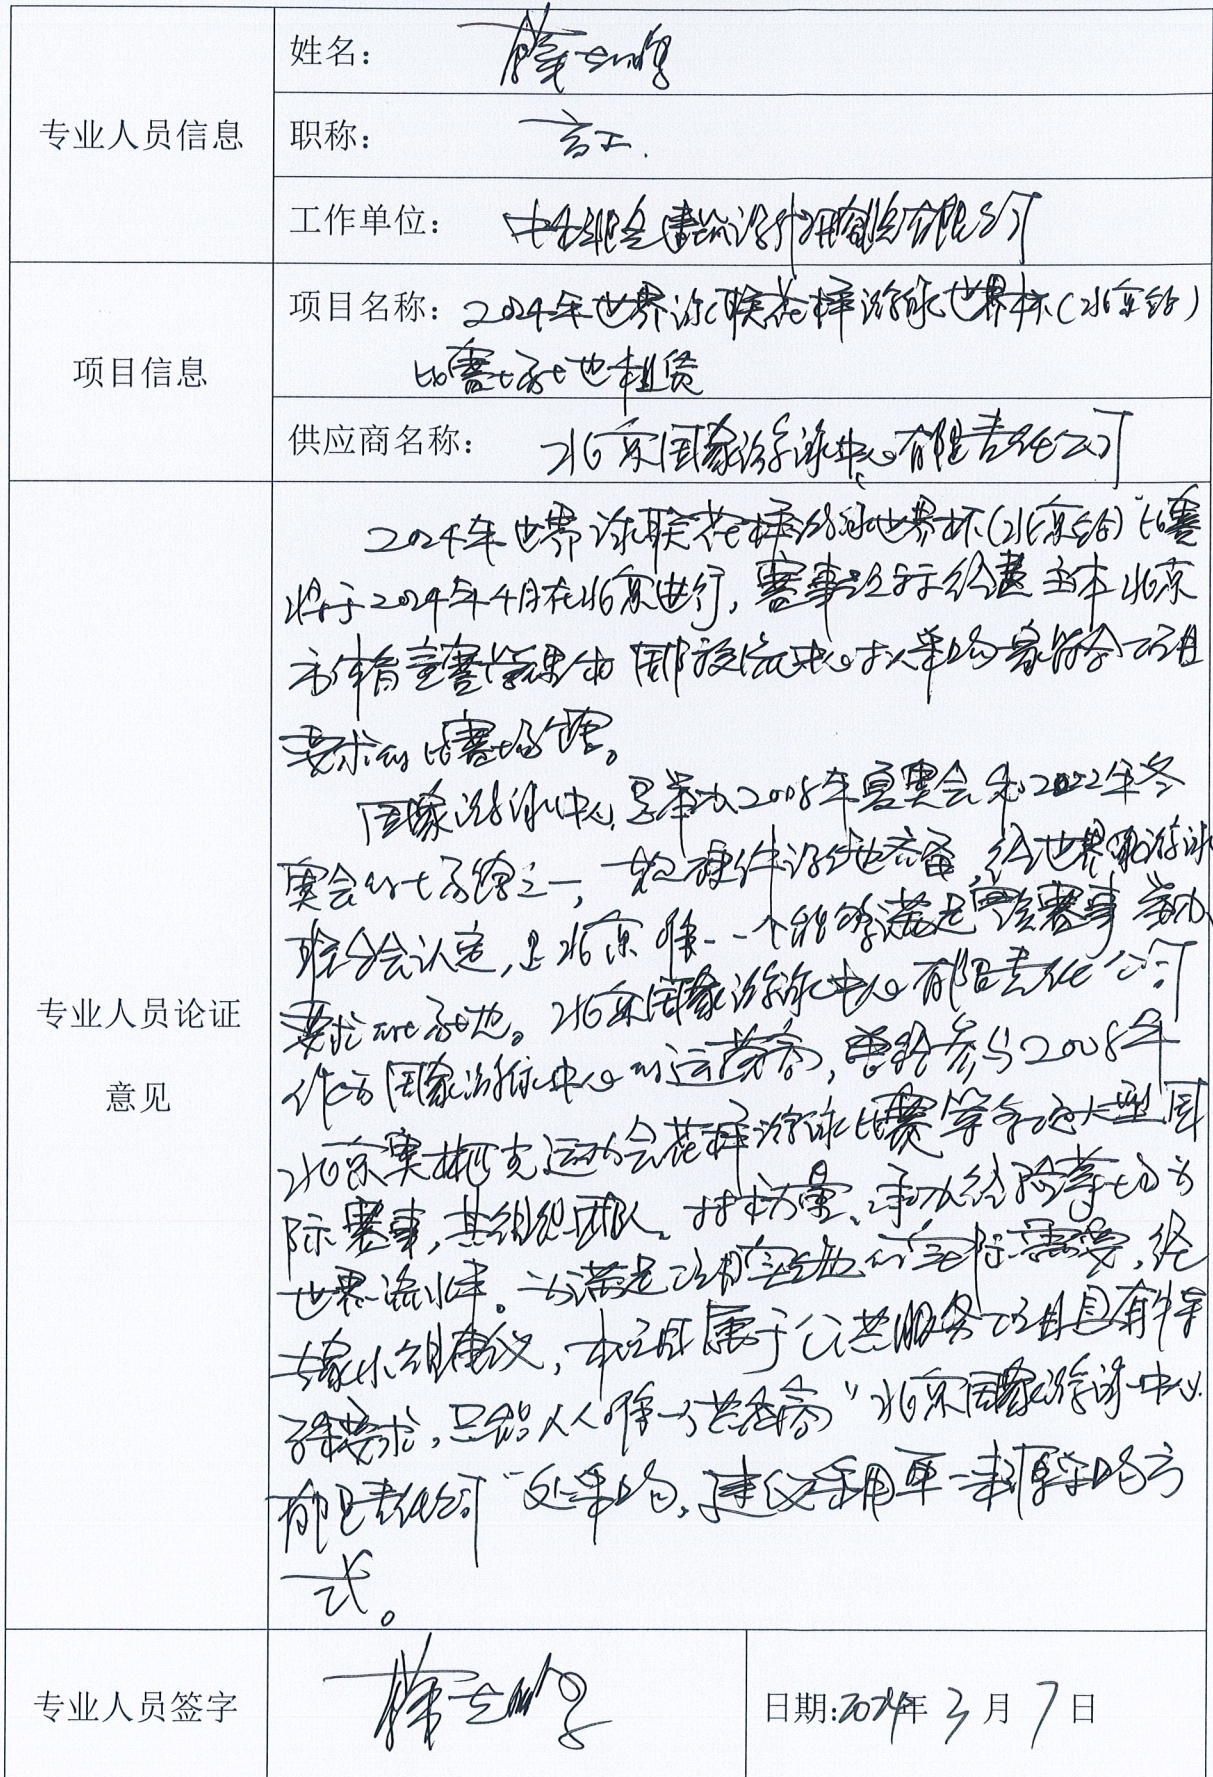 专业人员信息
姓名：
职称： 高工.
工作单位： 建筑设计有限公司
项目信息
项目名称：2024年世界泳联花样游泳世界杯（北京站）
比赛场地租赁
供应商名称： 北京国家游泳中心有限责任公司
专业人员论证
意见
2024年世界泳联花样游泳世界杯（北京站）比赛
将于2024年4月在北京进行，赛事
市体育竞赛管理和国际交流中心拟采购一家符合项目
要求的比赛场馆。
国家游泳中心是举办2008年夏奥会和2022年冬
奥会的场馆之一，软硬件设施齐备，经世界游泳
联合会认定，是北京唯一一个能够满足该赛事举办
要求的场地。北京国家游泳中心有限责任公司
作为国家游泳中心的运营商，曾经参与2008年
北京奥林匹克运动会花样游泳比赛等多项大型国
际赛事，其组织团队、技术力量、承办经验等均为
世界一流水准。为满足项目实施的实际需要，经
专家小组建议，本项目属于公共服务项目具有特
殊要求，只能从唯一供应商“北京国家游泳中心
有限责任公司”处采购，建议采用单一来源采购方
式。
专业人员签字
日期：2024年3月7日